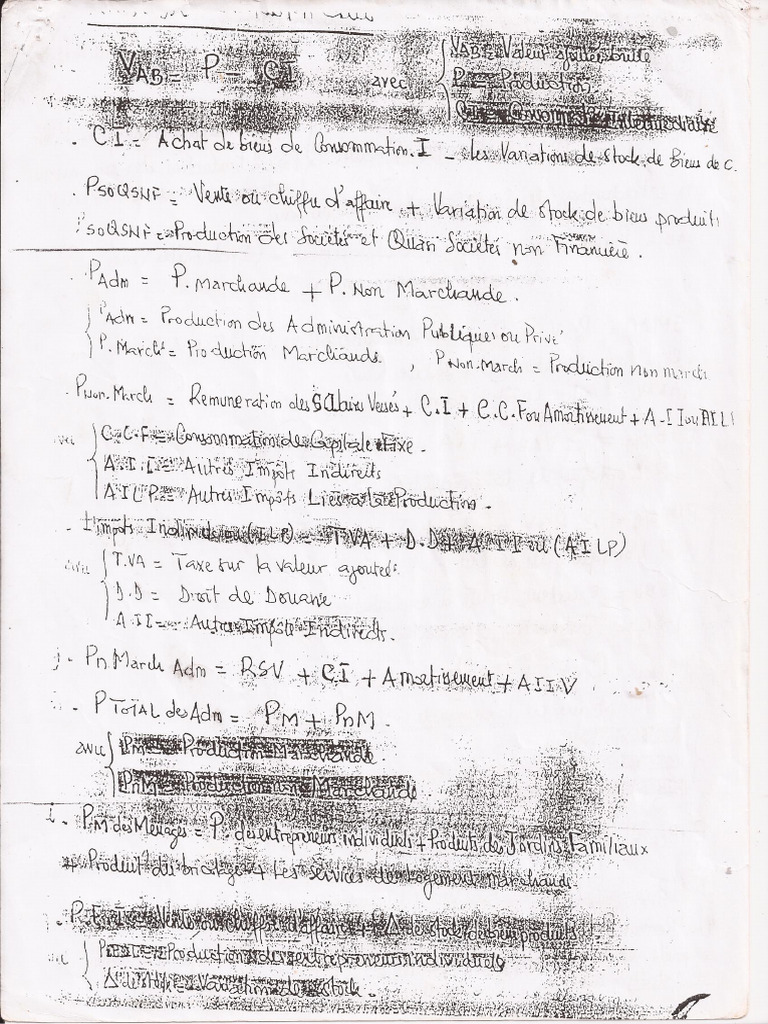 VAB = P - CI avec { VAB = Valeur ajoutée brute
P = Production
CI = Consommation Intermédiaire
. CI = Achat de biens de Consommation.I - les Variations de stock de biens de C.
. PSOQSNF = Vente ou chiffre d'affaire + Variation de stock de biens produits
PSOQSNF = Production des Sociétés et Quasi Sociétés non Financière.
. PAdm = P. Marchande + P. Non Marchande.
{ PAdm = Production des Administration Publiques ou Privé
P. March = Production Marchande, P Non.March = Production non march
. PNon.March = Remuneration des Salaires Versés + C.I + C.C.F ou Amortissement + A.II ou AILP
avec { C.C.F = Consommation de Capitale Fixe.
A.I.I = Autres Impots Indirects
AILP = Autres Impôts Liés à la Production.
. Impôts Indirects ou (ILP) = TVA + D.D + A II ou (AILP)
avec { T.VA = Taxe sur la valeur ajoutée.
D.D = Droit de Douane
A II = Autres Impôts Indirects.
j. Pn March Adm = RSV + CI + Amortissement + AIIV
. P TOTAL des Adm = PM + PnM.
avec { PM = Production Marchande.
PnM = Production non Marchande
i. PM des Menages = P. des entrepreneurs individuels + Produits de Jardins Familiaux
+ Produit du bricolage + Les services de logement marchands
. P.E.I = Vente ou chiffre d'affaire + Δ de stock de bien produits
{ P.E.I = Production des entrepreneurs individuels
Δ de stock = Variation de stock.